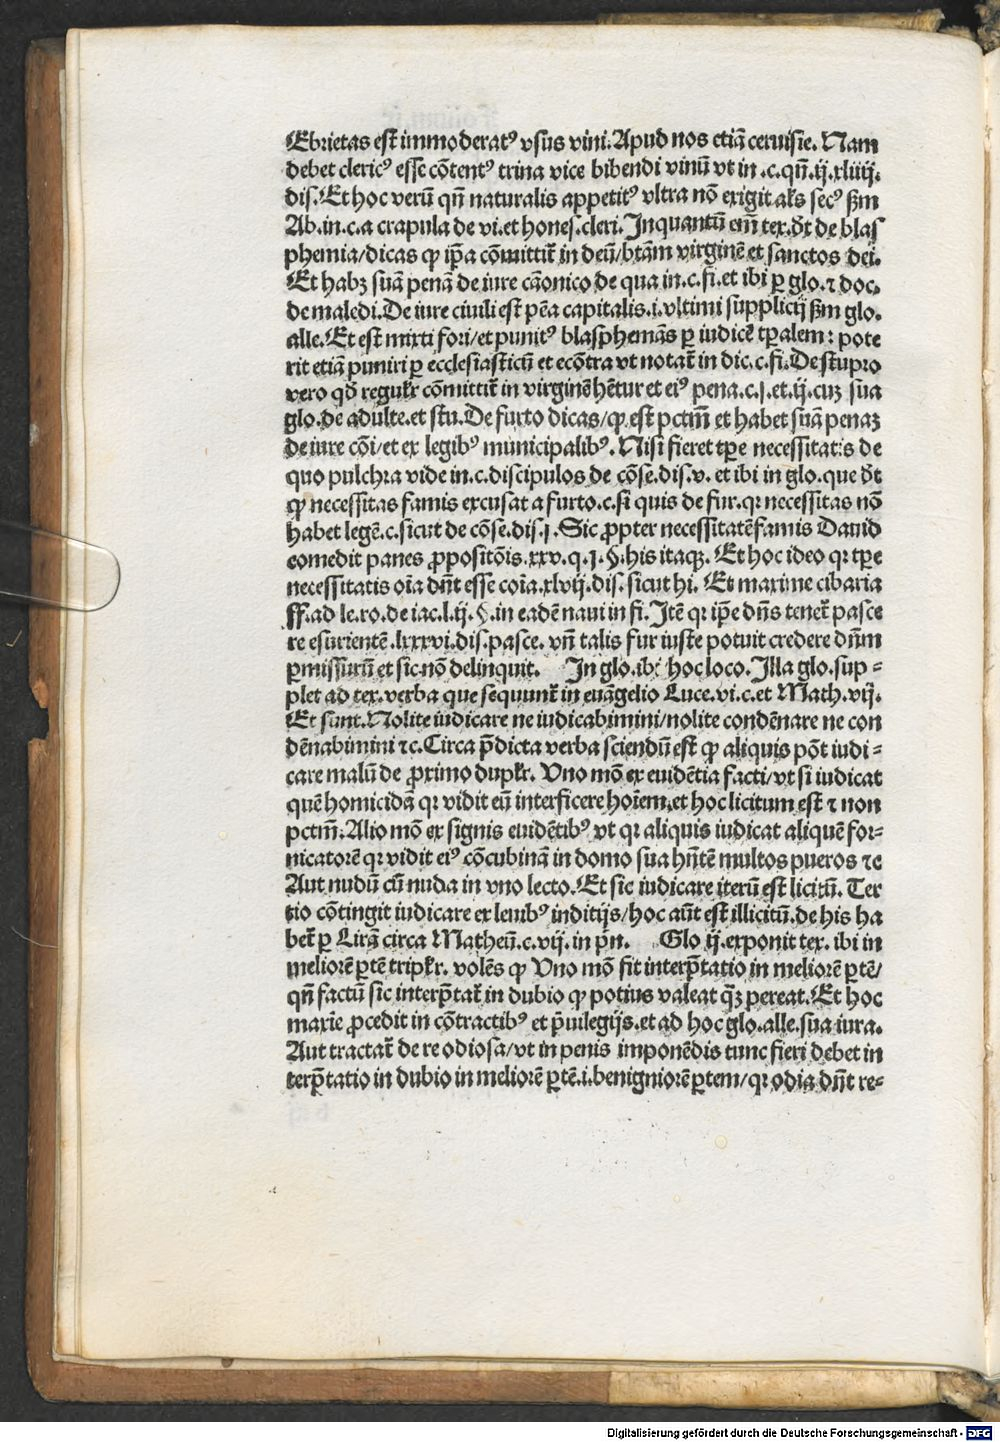 Ebrietas est immoderatꝰ vsus vini. Apud nos etiā ceruisie. Nam
debet clericꝰ esse cōtentꝰ trina vice bibendi vinū vt in .c.qn̄.ij.xliiij.
dis. Et hoc verū qn̄ naturalis appetitꝰ vltra nō exigit al's secꝰ ßm
Ab.in.c.a crapula de vi.et hones.cleri. Inquantū em̄ tex.dr̄ de blas
phemia/dicas ꝙ ip̄a cōmittit̃ in deū/btām virginē et sanctos dei.
Et habꝫ suā penā de iure cāonico de qua in.c.fi.et ibi ꝑ glo.⁊ doc.
de maledi. De iure ciuili est pēa capitalis.i.vltimi supplicij ßm glo.
alle. Et est mixti fori/et punitꝰ blasphemās ꝑ iudicē tp̄alem: pote
rit etiā puniri ꝑ ecclesiasticū et ecōtra vt notat̃ in dic.c.fi. De stupro
vero qd̄ regul'r cōmittit̃ in virginē hētur et eiꝰ pena.c.j.et.ij.cuꝫ sua
glo.de adulte.et stu. De furto dicas/ꝙ est pctm̄ et habet suā penaꝫ
de iure cōi/et ex legibꝰ municipalibꝰ. Nisi fieret tꝑe necessitatis de
quo pulchra vide in.c.discipulos de cōse.dis.v. et ibi in glo.que dr̄
ꝙ necessitas famis excusat a furto.c.si quis de fur.qꝛ necessitas nō
habet legē.c.sicut de cōse.dis.j. Sic ꝓpter necessitatē famis Dauid
comedit panes ꝓpositōis.xxv.q.j.§.his itaqꝫ. Et hoc ideo qꝛ tꝑe
necessitatis oīa dn̄t esse coīa.xlvij.dis.sicut hi. Et maxime cibaria
ff.ad le.ro.de iac.l.ij.§.in eadē naui in fi. Itē qꝛ ip̄e dn̄s tenet̃ pasce
re esurientē.lxxxvi.dis.pasce. vn̄ talis fur iuste potuit credere dn̄m
ꝑmissurū et sic nō delinquit. In glo.ibi hoc loco. Illa glo.sup⸗
plet ad tex.verba que sequunt̃ in euāgelio Luce.vi.c.et Math.vij.
Et sunt. Nolite iudicare ne iudicabimini/nolite condēnare ne con
dēnabimini ⁊c. Circa p̄dicta verba sciendū est ꝙ aliquis pōt iudi⸗
care malū de ꝓximo dupl'r. Vno mō ex euidētia facti/vt si iudicat
quē homicidā qꝛ vidit eū interficere hoīem.et hoc licitum est ⁊ non
pctm̄. Alio mō ex signis euidētibꝰ vt qꝛ aliquis iudicat aliquē for⸗
nicatorē qꝛ vidit eiꝰ cōcubinā in domo sua hn̄tē multos pueros ⁊c
Aut nudū cū nuda in vno lecto. Et sic iudicare iterū est licitū. Ter
tio cōtingit iudicare ex leuibꝰ inditijs/hoc aūt est illicitū.de his ha
bet̃ ꝑ Lirā circa Matheū.c.vij.in prin. Glo ij.exponit tex. ibi in
meliorē ꝑtē tripl'r. volēs ꝙ Vno mō fit interp̄tatio in meliorē ꝑtē/
qn̄ factū sic interp̄tat̃ in dubio ꝙ potius valeat q̄ꝫ pereat. Et hoc
maxīe ꝓcedit in cōtractibꝰ et p̄uilegijs.et ad hoc glo.alle.sua iura.
Aut tractat̃ de re odiosa/vt in penis imponēdis tunc fieri debet in
terp̄tatio in dubio in meliorē ꝑtē.i.benigniorē ꝑtem/qꝛ odia dn̄t re⸗
Digitalisierung gefördert durch die Deutsche Forschungsgemeinschaft - DFG